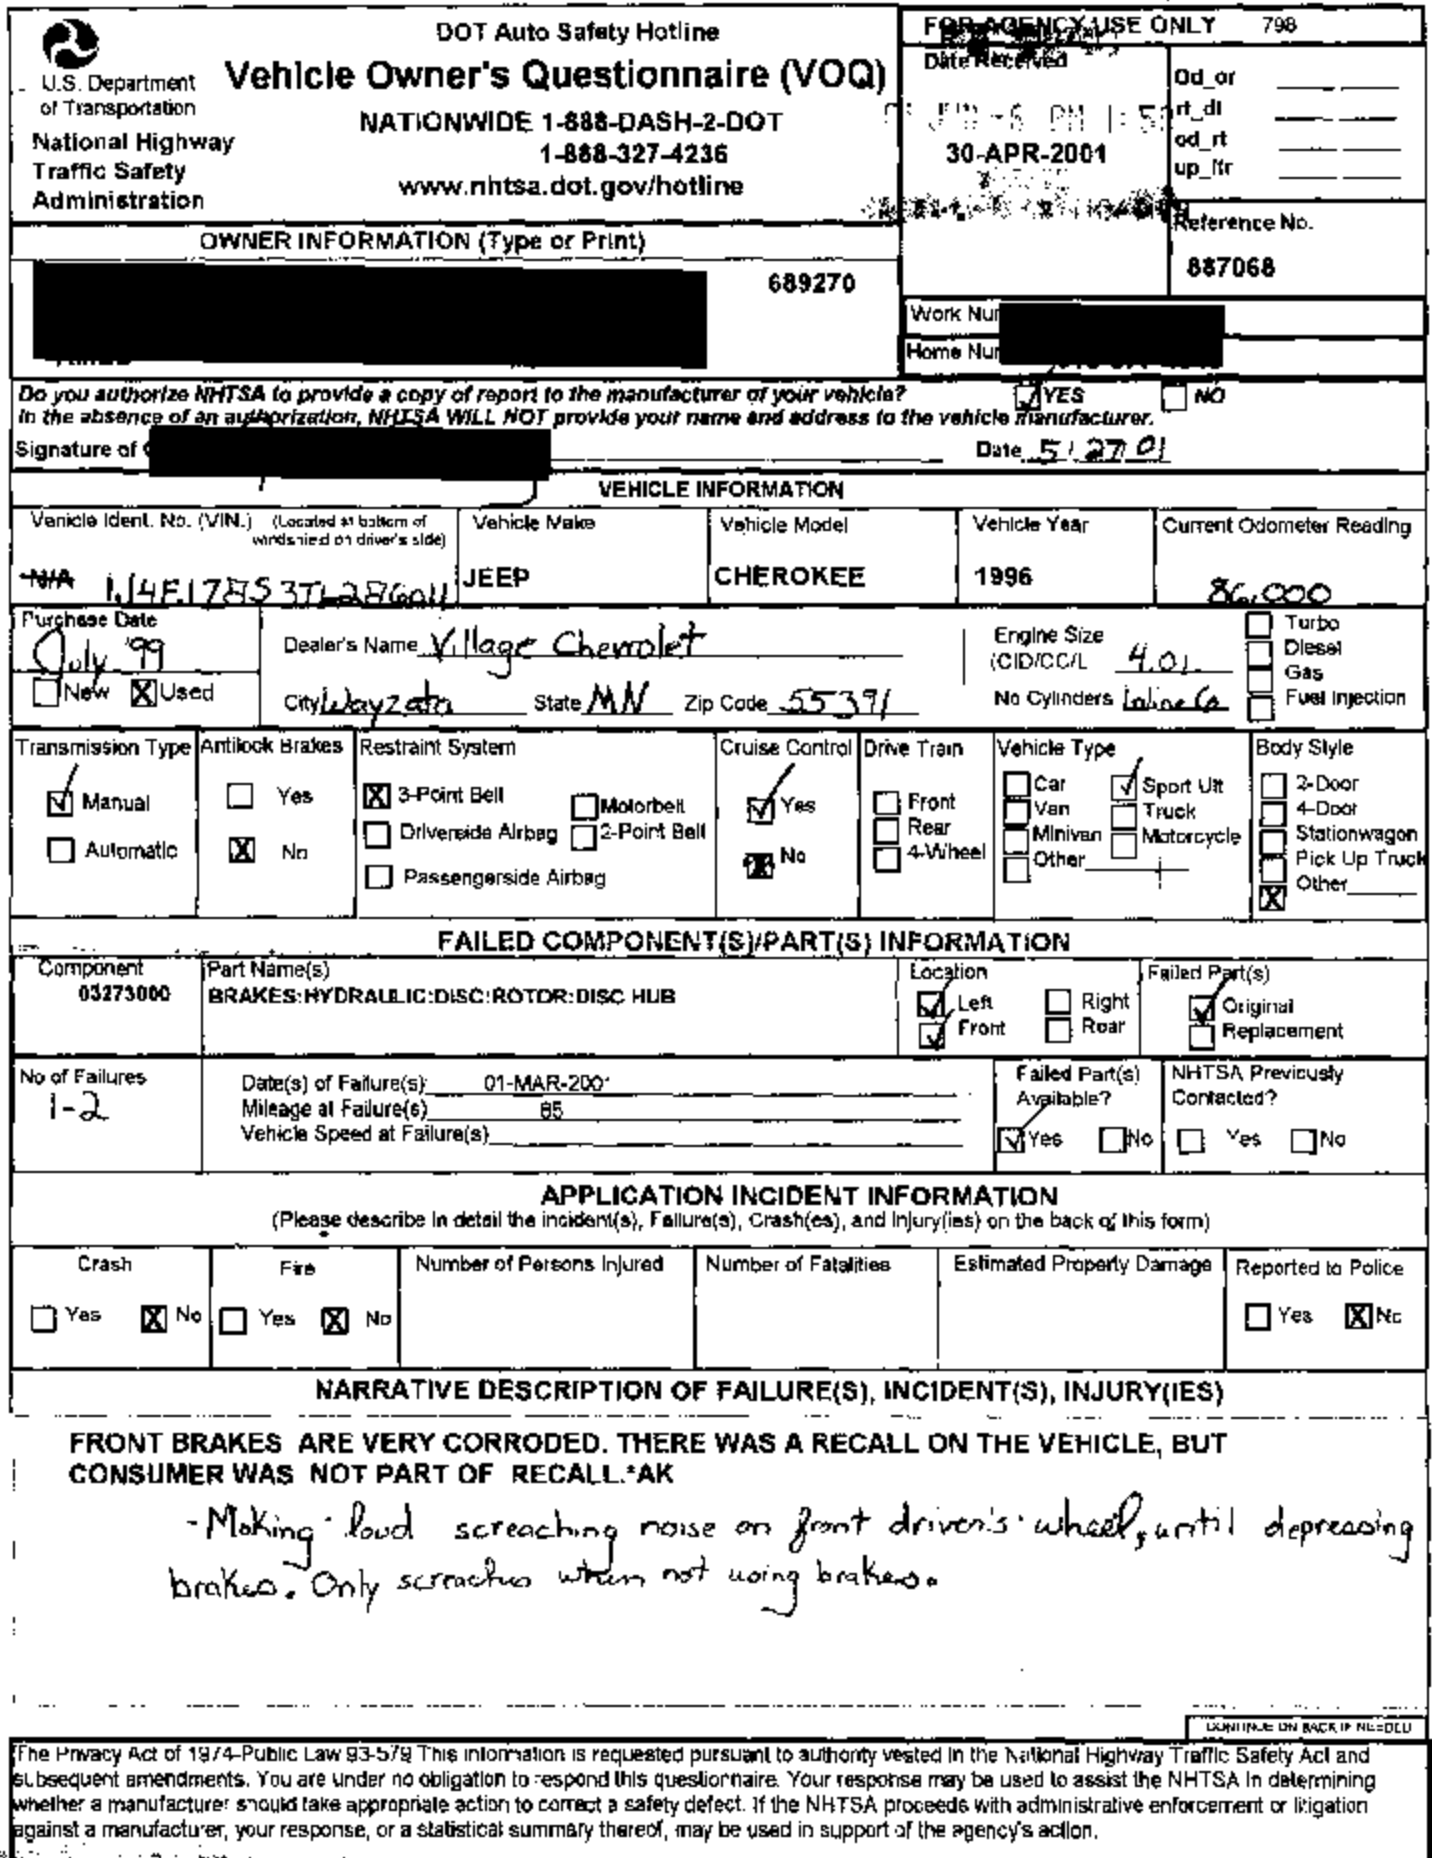 DOT Auto Safety Hotline
Vehicle Owner's Questionnaire (VOQ)
NATIONWIDE 1-888-DASH-2-DOT
1-888-327-4236
www.nhtsa.dot.gov/hotline
U.S. Department
of Transportation
National Highway
Traffic Safety
Administration
FOR AGENCY USE ONLY 798
Date Received
30-APR-2001
Od_or
rt_dt
od_rt
up_ltr
Reference No.
887068
OWNER INFORMATION (Type or Print)
689270
Work Nu
Home Nu
Do you authorize NHTSA to provide a copy of report to the manufacturer of your vehicle? YES NO
In the absence of an authorization, NHTSA WILL NOT provide your name and address to the vehicle manufacturer.
Signature of Date 5/27/01
VEHICLE INFORMATION
Vehicle Ident. No. (VIN.) (Located at bottom of
windshield on driver's side)
N/A
Vehicle Make
JEEP
Vehicle Model
CHEROKEE
Vehicle Year
1996
Current Odometer Reading
86,000
Purchase Date
July '99
New Used
Dealer's Name Village Chevrolet
City Wayzata State MN Zip Code 55391
Engine Size
(CID/CC/L 4.0L
No Cylinders Inline 6
Turbo
Diesel
Gas
Fuel Injection
Transmission Type
Manual
Automatic
Antilock Brakes
Yes
No
Restraint System
3-Point Belt Motorbelt
Driverside Airbag 2-Point Belt
Passengerside Airbag
Cruise Control
Yes
No
Drive Train
Front
Rear
4-Wheel
Vehicle Type
Car Sport Ult
Van Truck
Minivan Motorcycle
Other
Body Style
2-Door
4-Door
Stationwagon
Pick Up Truck
Other
FAILED COMPONENT(S)/PART(S) INFORMATION
Component
03273000
Part Name(s)
BRAKES:HYDRAULIC:DISC:ROTOR:DISC HUB
Location
Left Right
Front Rear
Failed Part(s)
Original
Replacement
No of Failures
1-2
Date(s) of Failure(s) 01-MAR-2001
Mileage at Failure(s) 85
Vehicle Speed at Failure(s)
Failed Part(s)
Available?
Yes No
NHTSA Previously
Contacted?
Yes No
APPLICATION INCIDENT INFORMATION
(Please describe in detail the incident(s), Failure(s), Crash(es), and Injury(ies) on the back of this form)
Crash
Yes No
Fire
Yes No
Number of Persons Injured
Number of Fatalities
Estimated Property Damage
Reported to Police
Yes No
NARRATIVE DESCRIPTION OF FAILURE(S), INCIDENT(S), INJURY(IES)
FRONT BRAKES ARE VERY CORRODED. THERE WAS A RECALL ON THE VEHICLE, BUT
CONSUMER WAS NOT PART OF RECALL.*AK
- Making loud screaching noise on front driver's wheel, until depressing
brakes. Only screaches when not using brakes.
CONTINUE ON BACK IF NEEDED
The Privacy Act of 1974-Public Law 93-579 This information is requested pursuant to authority vested in the National Highway Traffic Safety Act and
subsequent amendments. You are under no obligation to respond this questionnaire. Your response may be used to assist the NHTSA in determining
whether a manufacturer should take appropriate action to correct a safety defect. If the NHTSA proceeds with administrative enforcement or litigation
against a manufacturer, your response, or a statistical summary thereof, may be used in support of the agency's action.